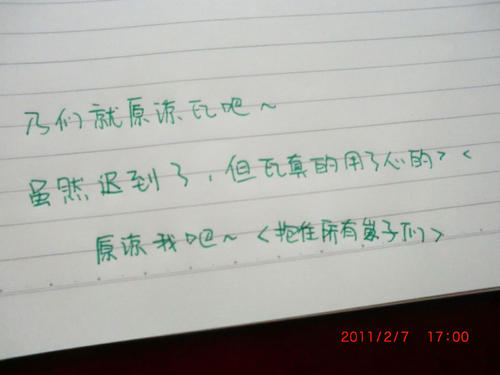 乃们就原谅瓦吧~
虽然迟到了，但瓦真的用了心的><
原谅我吧~<抱住所有崽子们>
2011/2/7 17:00